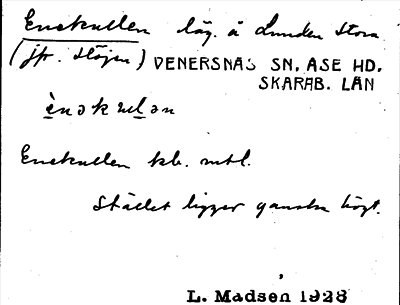 Enekullen läg. å Lunden Stora
(jfr. Höjen) VENERSNÄS SN, ÅSE HD.
SKARAB. LÄN
ènəkulən
Enekullen kb. mtl.
Stället ligger ganska högt.
L. Madsén 1928